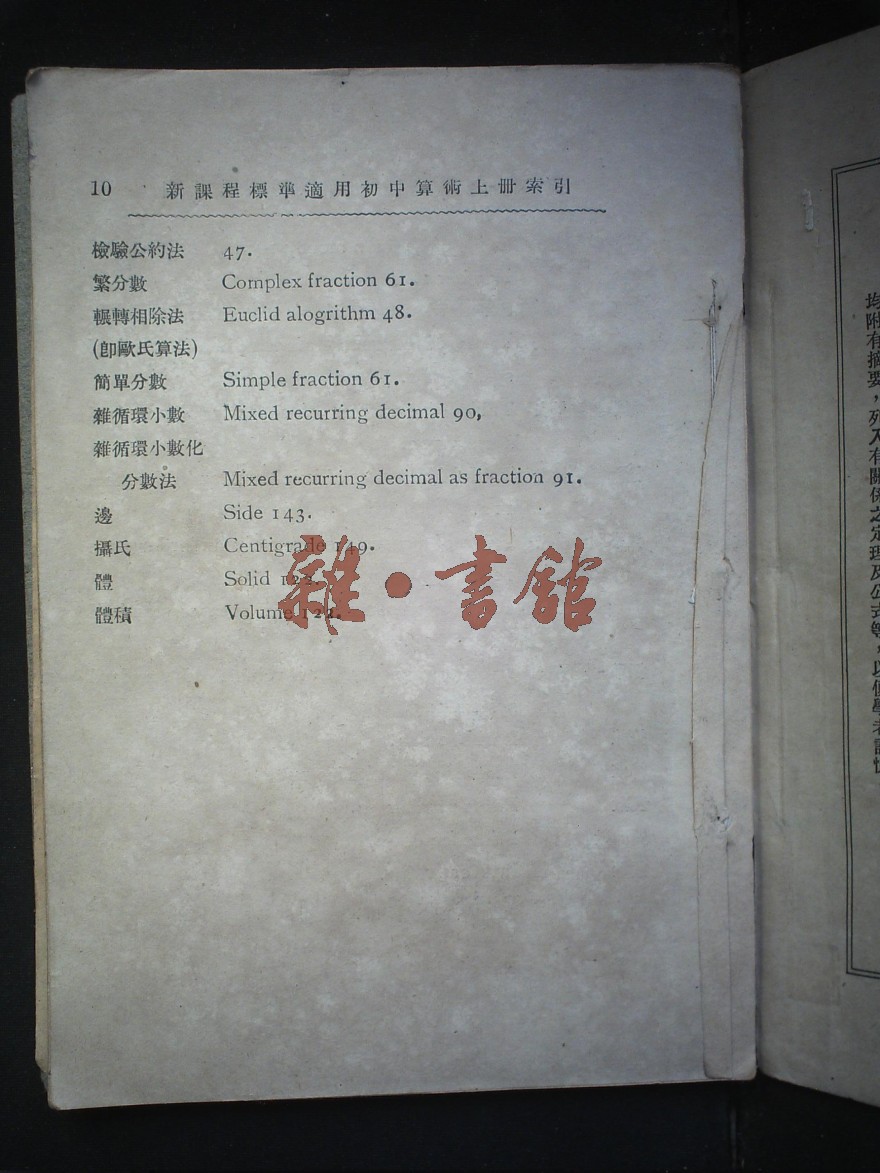 10 新課程標準適用初中算術上冊索引
檢驗公約法 47.
繁分數 Complex fraction 61.
輾轉相除法 Euclid alogrithm 48.
(卽歐氏算法)
簡單分數 Simple fraction 61.
雜循環小數 Mixed recurring decimal 90,
雜循環小數化
分數法 Mixed recurring decimal as fraction 91.
邊 Side 143.
攝氏 Centigrade 149.
體 Solid 122.
體積 Volume 122.
雜·書館
均附有摘要，列入有關係之定理及公式等，以便學者記憶